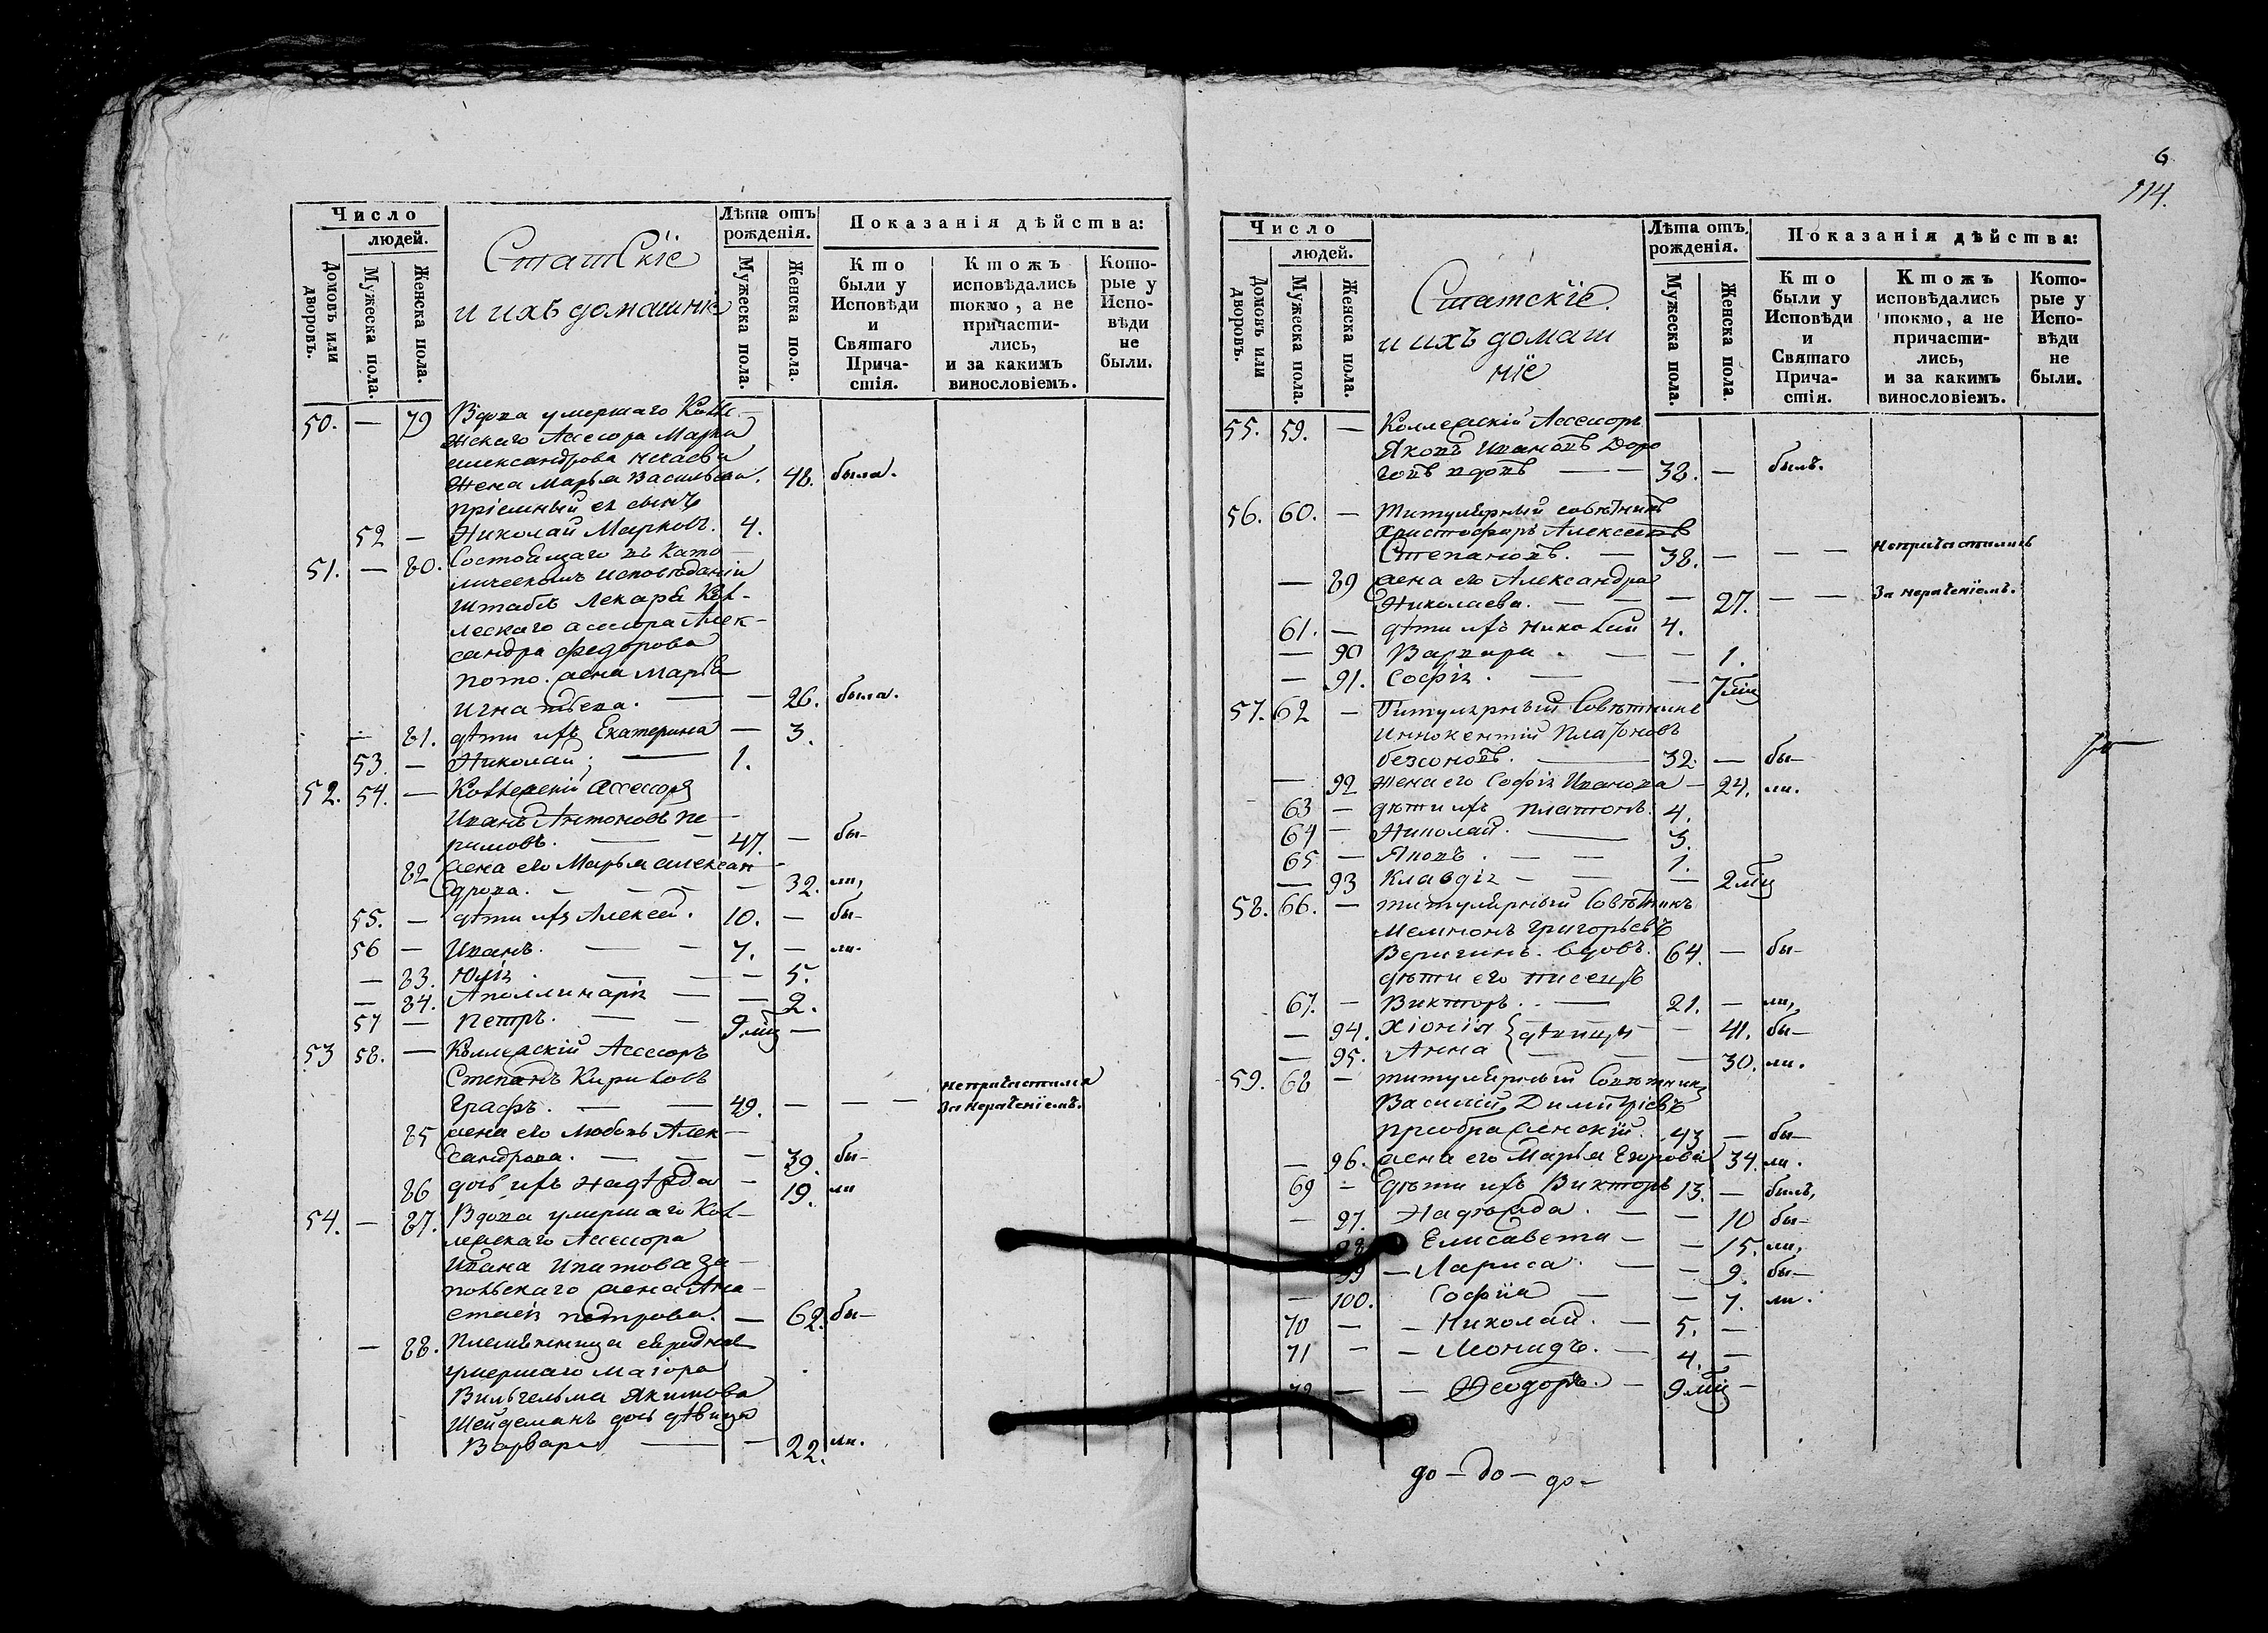 6
114.
Число
людей.
Домовъ или дворовъ.
Мужеска пола.
Женска пола.
Статскіе
и ихъ домашніе
Лѣта отъ рожденія.
Мужеска пола.
Женска пола.
Показанія дѣйства:
Кто были у Исповѣди и Святаго Причастія.
Ктожъ исповѣдались токмо, а не причастились, и за какимъ винословіемъ.
Которые у Исповѣди не были.
50. — 79 Вдова умершаго Колле-
жскаго Ассесора Марка
Александрова
жена Марья Васильева. 48. была.
пріемный ея сынъ
52 — Николай Марковъ. 4.
51. — 80. Состоящаго въ Като-
лическомъ исповѣданіи
штабъ Лекаря Кол-
лескаго ассесора Алек-
сандра Федорова
жена Марья
Игнатьева. — — 26. была.
— 81. дѣти ихъ Екатерина — 3.
53. — Николай; — 1.
52. 54. — Коллежскій Ассесоръ
Иванъ Антоновъ Пе-
римовъ. — — 47. — бы-
82 жена его Марья Алексан-
дрова. — — — — 32. ли,
55. — дѣти ихъ Алексей. 10. — бы-
56 — Иванъ. — — 7. — ли.
— 83. Юлія. — — — 5.
— 84. Аполлинарія — — 2.
57 — Петръ. — — 9 мцъ —
53 58. — Коллежскій Ассесоръ
Степанъ Кириловъ
Графъ. — — 49. — — — непричастился за нераченіемъ.
85 жена его Любовь Алек-
сандрова. — — — 39. бы-
86 дочь ихъ Надѣжда — 19. ли
54. — 87. Вдова умершаго Кол-
лежскаго Ассесора
Ивана Ипатова За-
польскаго жена Ана-
стасія Петрова. — 62. бы-
— 88. Племянница ея родная
умершаго Маіора
Вильгельма Якимова
Шейдеманъ дочь дѣвица
Варвара — — 22. ли.
Число
людей.
Домовъ или дворовъ.
Мужеска пола.
Женска пола.
Статскіе
и ихъ домаш
ніе
Лѣта отъ рожденія.
Мужеска пола.
Женска пола.
Показанія дѣйства:
Кто были у Исповѣди и Святаго Причастія.
Ктожъ исповѣдались токмо, а не причастились, и за какимъ винословіемъ.
Которые у Исповѣди не были.
55. 59. — Коллежскій Ассесоръ
Яковъ Ивановъ Доро
говъ вдовъ — — 38. — былъ.
56. 60. — Титулярный совѣтникъ
Христофоръ Алексеевъ
Степановъ. — 38. — — — непричастились
— 89 жена его Александра
Николаева. — — — 27. — — за нераченіемъ.
61. — дѣти ихъ Николай 4.
— 90 Варвара. — — 1.
— 91. Софія. — — 7 мцъ
57. 62 — Титулярный Совѣтникъ
Иннокентій Платоновъ
безсоновъ. — 32. — бы-
— 92 жена его Софія Иванова — 24. ли.
63 — дѣти ихъ Платонъ. 4.
64 — Николай. — 3.
65 — Яковъ. — — 1.
— 93 Клавдія — — — 2 мцъ
58. 66. — титулярный Совѣтникъ
Мемнонъ Григорьевъ
Веригинъ. вдовъ. 64. — бы-
дѣти его писецъ
67. — Викторъ. — 21. — ли,
— 94. Хіонія } дѣвицы — 41. бы-
— 95. Анна — — — 30. ли.
59. 68 — титулярный Совѣтникъ
Василий Димитріевъ
Преображенскій. 43 — бы-
— 96. жена его Марья Егорова 34. ли.
69 — дѣти ихъ Викторъ 13. — былъ,
— 97. Надѣжда. — — 10 бы-
98 Елисавета — — 15. ли,
99 — Лариса. — — 9. бы-
— 100. Софія — — 7. ли.
70 — — Николай. — 5. —
71 — — Леонидъ. — 4. —
72 — — Феодоръ. — 9 мцъ —
до — до — до —